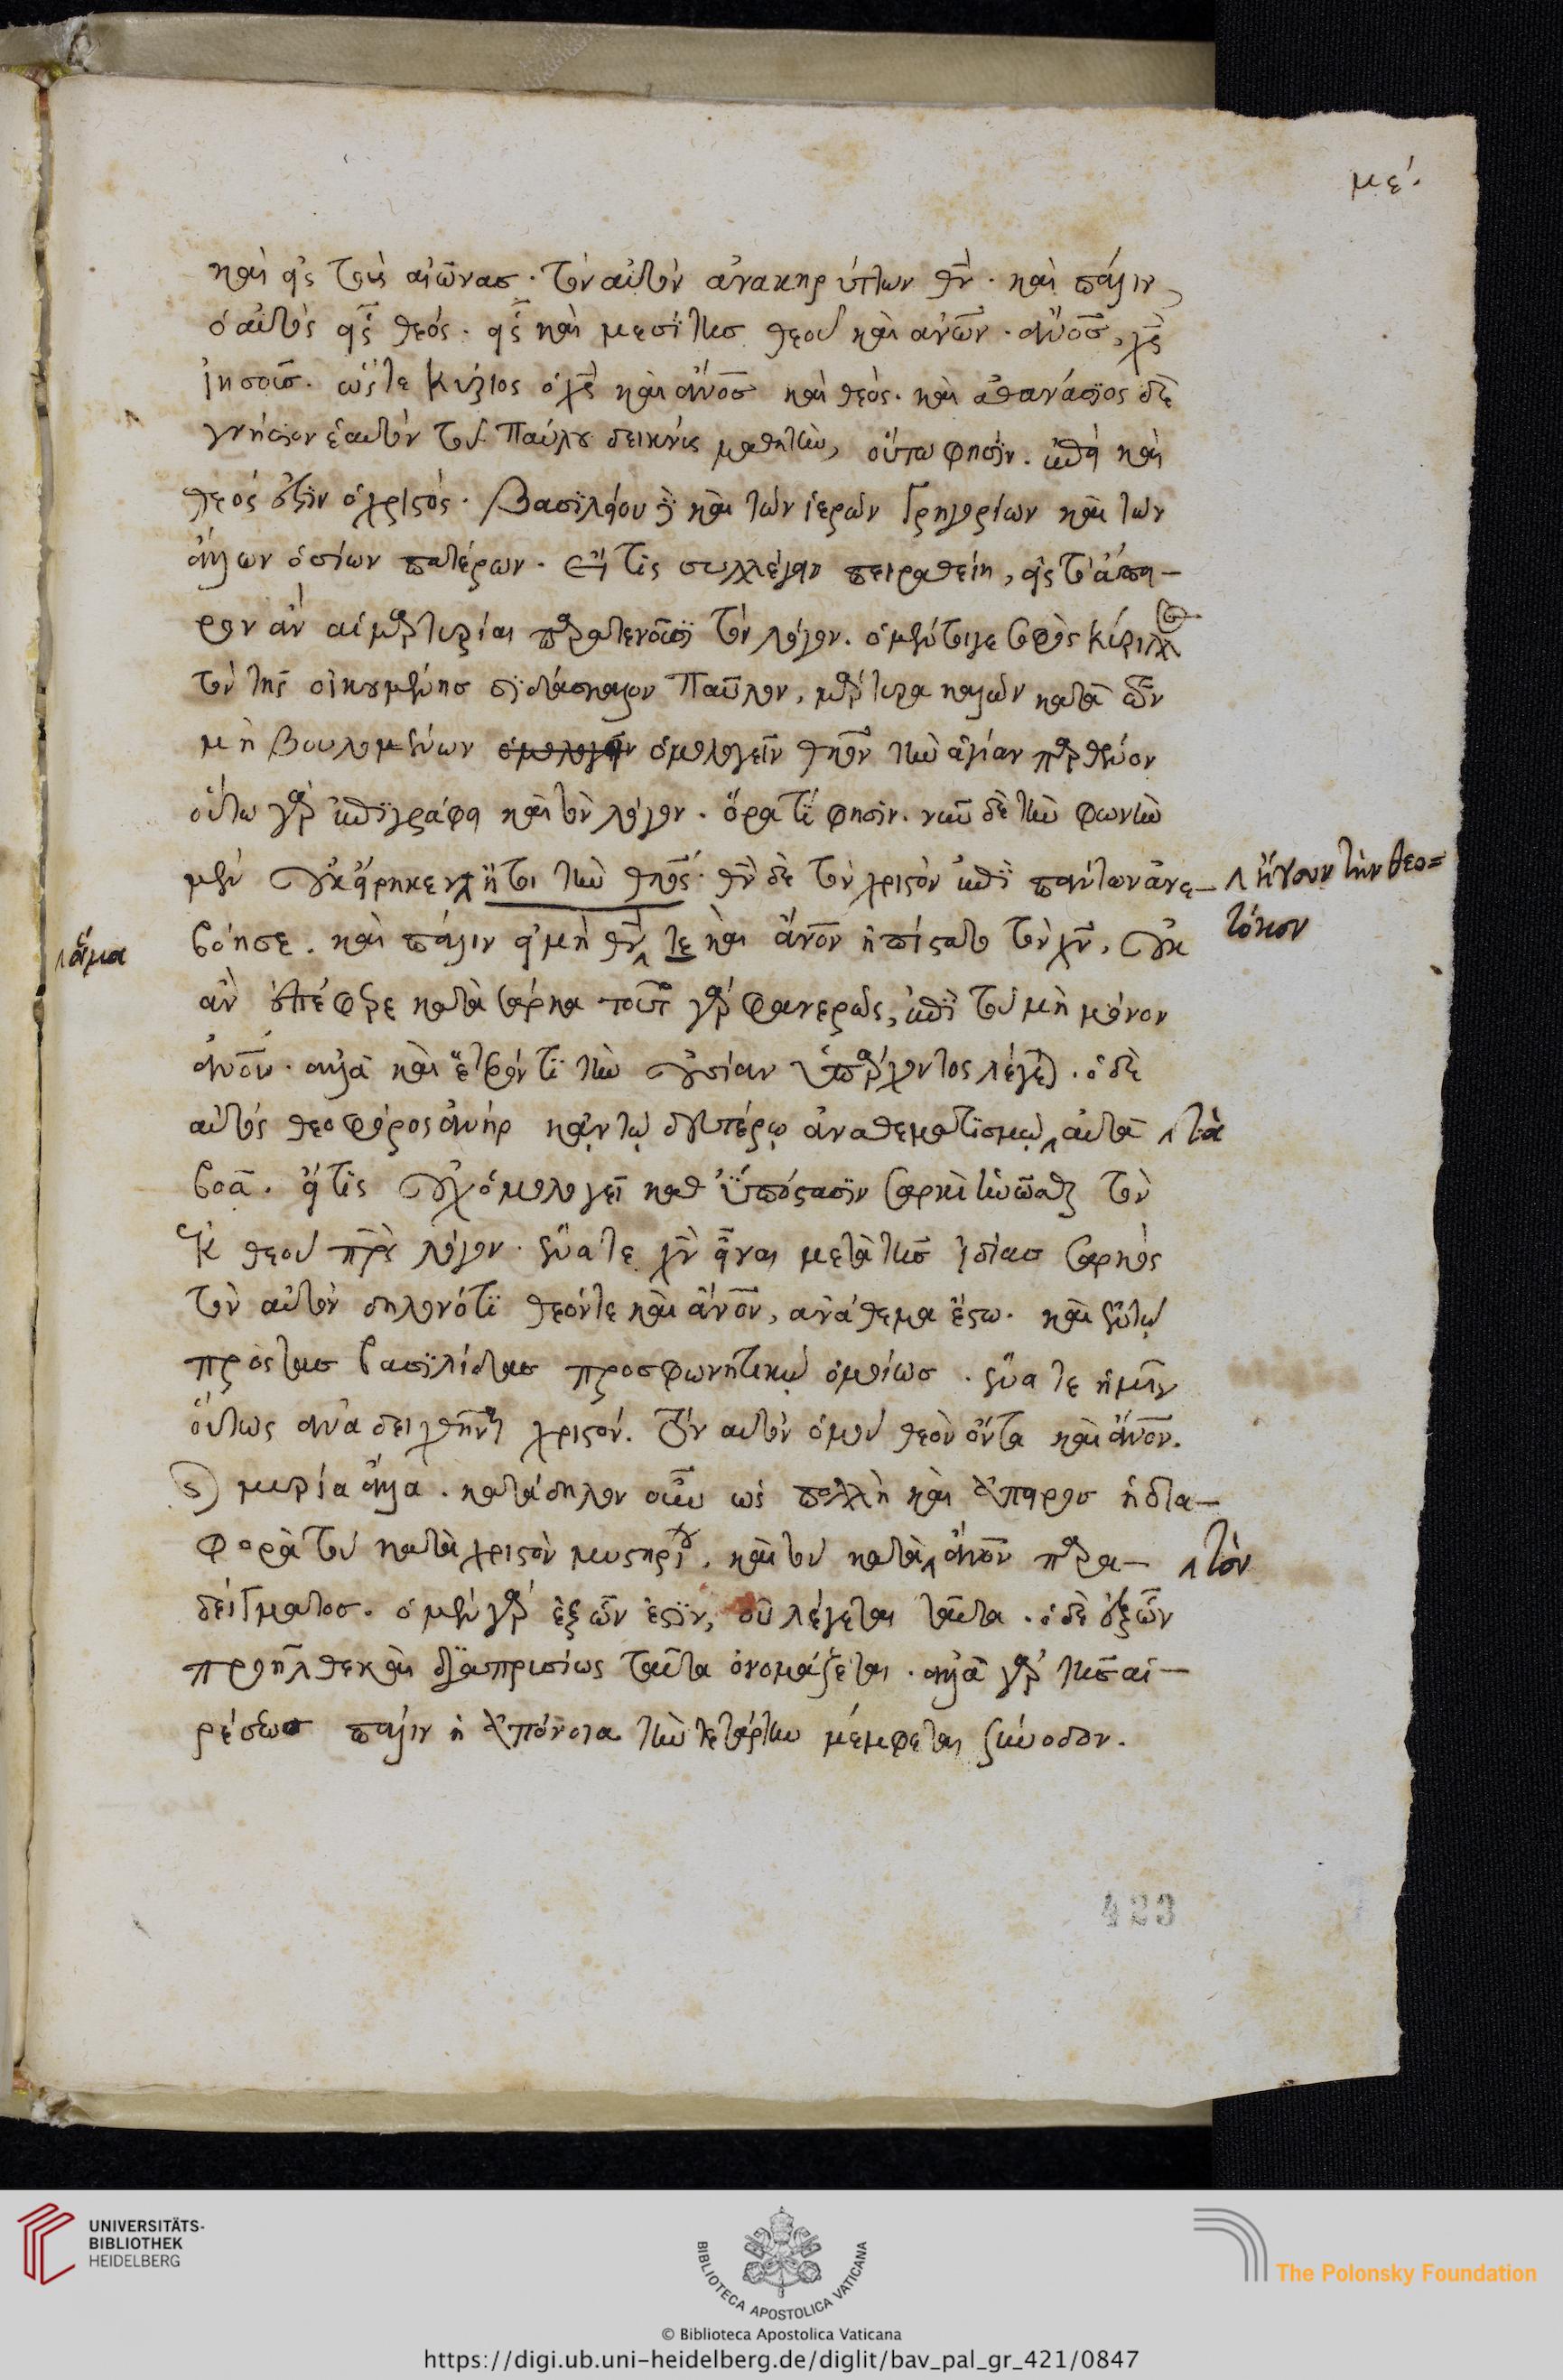 με΄.
καὶ εἰς τοὺς αἰῶνασ· τὸν αὐτὸν ἀνακηρύττων θν̅· καὶ πάλιν,
ὁ αὐτὸς εἷς θεός· εἷς καὶ μεσίτησ θεοῦ καὶ ἀνω̅ν· ἀνο̅σ, χς̅
ἰησοῦσ. ὥστε κύριος ὁ χς̅ καὶ ἀνο̅σ καὶ θεός. καὶ ἀθανάσιος δὲ
γνήσιον ἑαυτὸν τοῦ Παύλου δεικνὺς μαθητὴν, οὕτω φησίν. ἐπεὶ καὶ
θεός ἐστιν ὁ χριστός. βασιλείου δὲ καὶ τῶν ἱερῶν Γρηγορίων καὶ τῶν
ἄλλων ὁσίων πατέρων. εἴ τις συλλέγειν πειραθείη, εἰς τὸ ἄπει-
ρον ἂν αἱ μαρτυρίαι παρατενοῦσι τὸν λόγον. ὁ μέντοιγε σοφὸς κύριλλος
τὸν τῆς οἰκουμένησ διδάσκαλον Παῦλον, μάρτυρα καλῶν κατὰ τῶν
μὴ βουλομένων ὁμολογεῖν ὁμολογεῖν θκο̅ν τὴν ἁγίαν παρθένον
οὕτω γὰρ ἐπιγράφει καὶ τὸν λόγον. ὅρα τί φησιν. νῦν δὲ τὴν φωνὴν
μὲν οὐκ εἴρηκεν ἤτοι τὴν θκο̅ς· θν̅ δὲ τὸν χριστὸν ἐπὶ πάντων ἀνε-
⸌ἤγουν τὴν θεο=
τόκον
βόησε. καὶ πάλιν εἰ μὴ θν̅ τε καὶ ἄνο̅ν ἠπίστατο τὸν χν̅, οὐκ
⸌ἅμα
ἂν ἐπέφερε κατὰ σάρκα τοῦτο γὰρ φανερῶς, ἐπὶ τοῦ μὴ μόνον
ἀνο̅υ. ἀλλὰ καὶ ἕτερόν τι τὴν οὐσίαν ὑπάρχοντος λέγεται. ὁ δὲ
αὐτὸς θεοφόρος ἀνὴρ κἀν τῷ δευτέρῳ ἀναθεματισμῷ, αὐτὰ
⸌τὰ
βοᾶ. εἴ τις οὐχ ὁμολογεῖ καθ᾽ ὑπόστασιν σαρκὶ ἡνῶσθαι τὸν
ἐκ θεοῦ πρ̅ς λόγον. ἕνα τε χν̅ εἶναι μετὰ τῆσ ἰδίασ σαρκὸς
τὸν αὐτὸν δηλονότι θεόν τε καὶ ἄνο̅ν, ἀνάθεμα ἔστω. καὶ ἐν τῷ
πρὸς τὰσ βασιλίδασ προσφωνητικῷ ὁμοίωσ. ἕνα τε ἡμῖν
οὕτως ἀναδειχθῆναι χριστόν. τὸν αὐτὸν ὁμοῦ θεὸν ὄντα καὶ ἄνο̅ν.
καὶ μυρία ἄλλα. κατάδηλον οὖν ὡς πολλὴ καὶ ἄπειροσ ἡ δια-
φορὰ τοῦ κατὰ χριστὸν μυστηρίου, καὶ τοῦ κατὰ ἄνο̅ν παρα-
⸌τὸν
δείγματοσ. ὁ μὲν γὰρ ἐξ ὧν ἐστὶν, οὐ λέγεται ταῦτα. ὁ δὲ ἐξ ὧν
προῆλθε καὶ διαπρυσίως ταῦτα ὀνομάζεται. ἀλλὰ γὰρ τῆσ αἱ-
ρέσεωσ πάλιν ἡ ἀπόνοια τὴν τετάρτην μέμφεται σύνοδον.
423
UNIVERSITÄTS-
BIBLIOTHEK
HEIDELBERG
BIBLIOTECA APOSTOLICA VATICANA
The Polonsky Foundation
© Biblioteca Apostolica Vaticana
https://digi.ub.uni-heidelberg.de/diglit/bav_pal_gr_421/0847